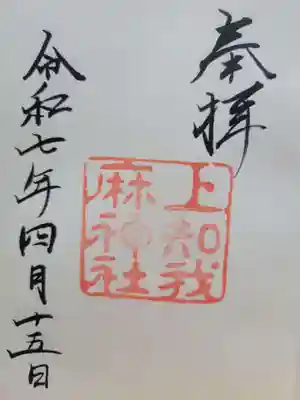 奉拝
上知我
麻神社
令和七年四月十五日